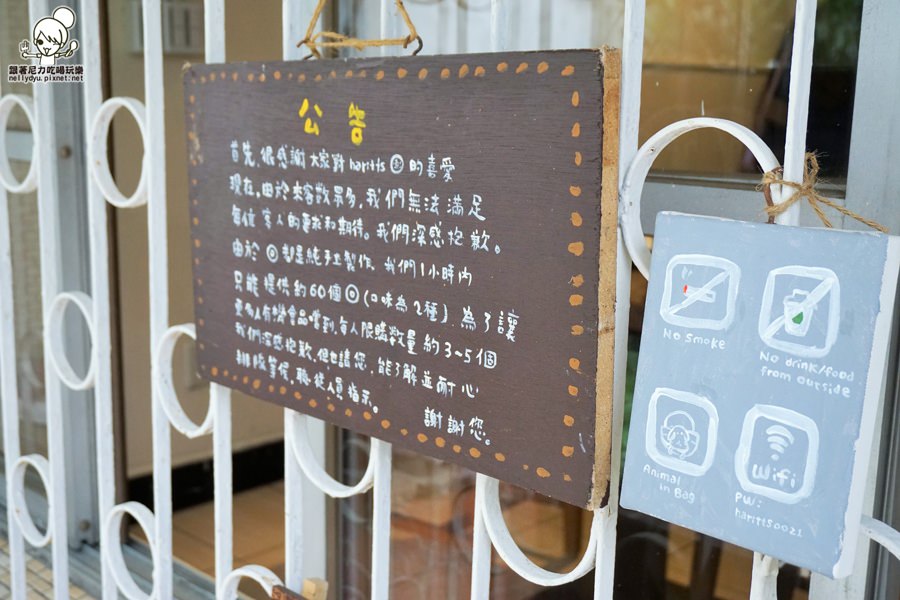 跟著尼力吃喝玩樂
nellydyu.pixnet.net
公告
首先,很感謝大家對 haritts ◎ 的喜愛
現在,由於來客數眾多,我們無法滿足
每位客人的要求和期待。我們深感抱歉。
由於 ◎ 都是純手工製作,我們1小時內
只能提供約60個◎(口味為2種),為了讓
更多人有機會品嚐到,每人限購數量約3~5個
我們深感抱歉,但也請您,能了解並耐心
排隊等候,聽從人員指示。
謝謝您。
No Smoke
No drink/food
from outside
Animal
in Bag
Wifi
PW:
haritts0021